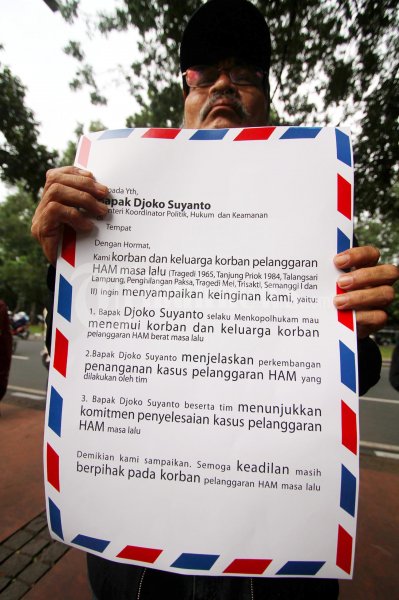 pada Yth,
apak Djoko Suyanto
nteri Koordinator Politik, Hukum dan Keamanan
Tempat
Dengan Hormat,
Kami korban dan keluarga korban pelanggaran
HAM masa lalu (Tragedi 1965, Tanjung Priok 1984, Talangsari
Lampung, Penghilangan Paksa, Tragedi Mei, Trisakti, Semanggi I dan
II) ingin menyampaikan keinginan kami, yaitu:
1. Bapak Djoko Suyanto selaku Menkopolhukam mau
menemui korban dan keluarga korban
pelanggaran HAM berat masa lalu
2.Bapak Djoko Suyanto menjelaskan perkembangan
penanganan kasus pelanggaran HAM yang
dilakukan oleh tim
3. Bapak Djoko Suyanto beserta tim menunjukkan
komitmen penyelesaian kasus pelanggaran
HAM masa lalu
Demikian kami sampaikan. Semoga keadilan masih
berpihak pada korban pelanggaran HAM masa lalu